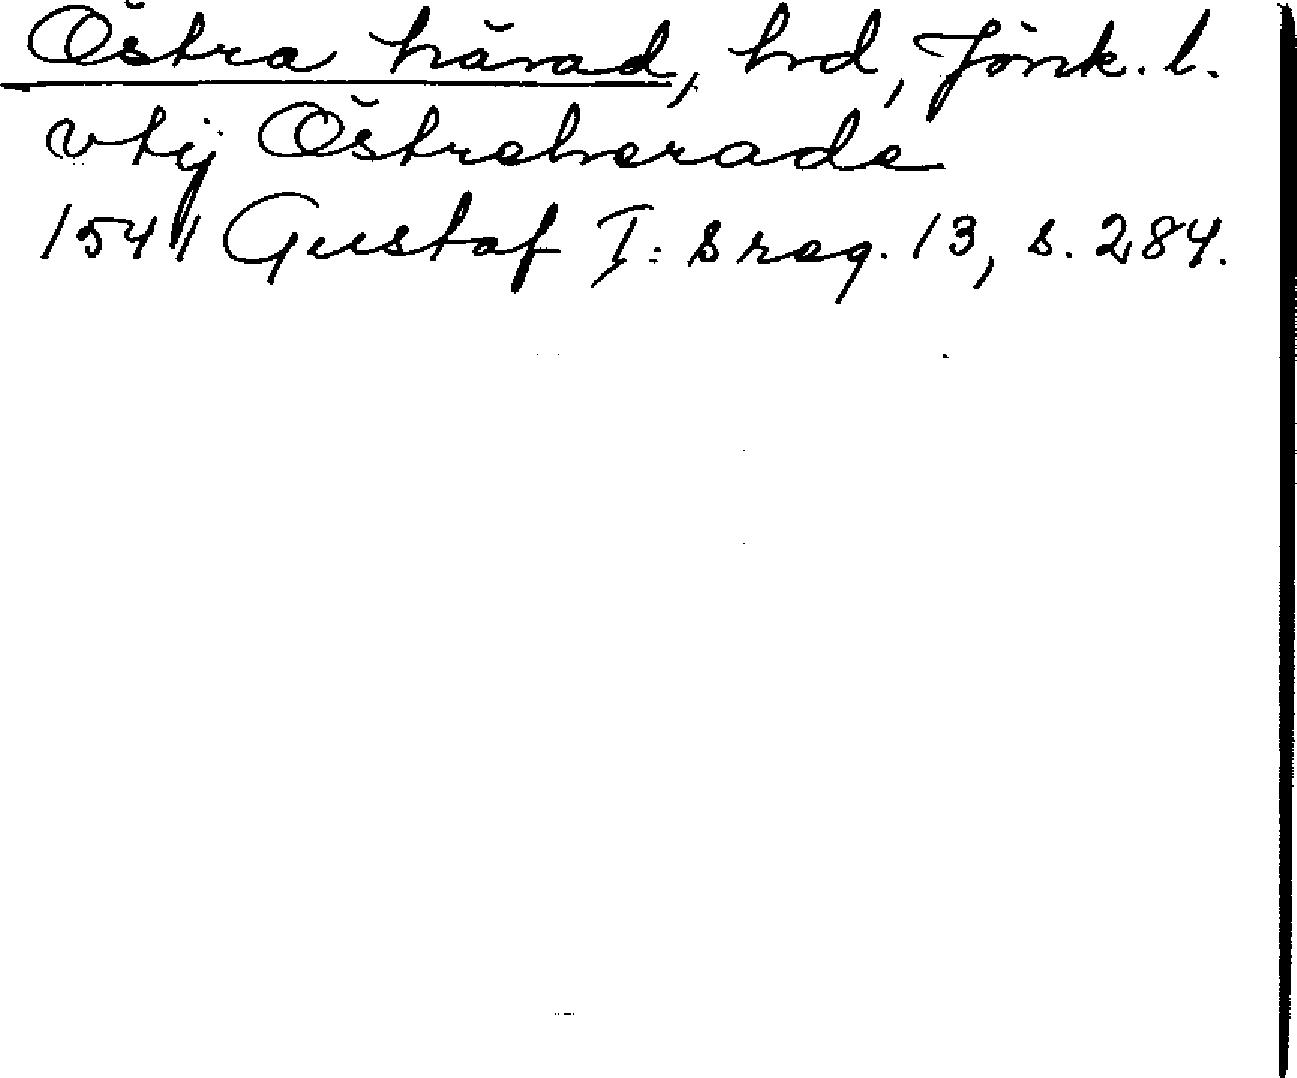 Östra härad, hrd, Jönk. l.
vtij Östreherade
1541 Gustaf I:s reg. 13, s. 284.